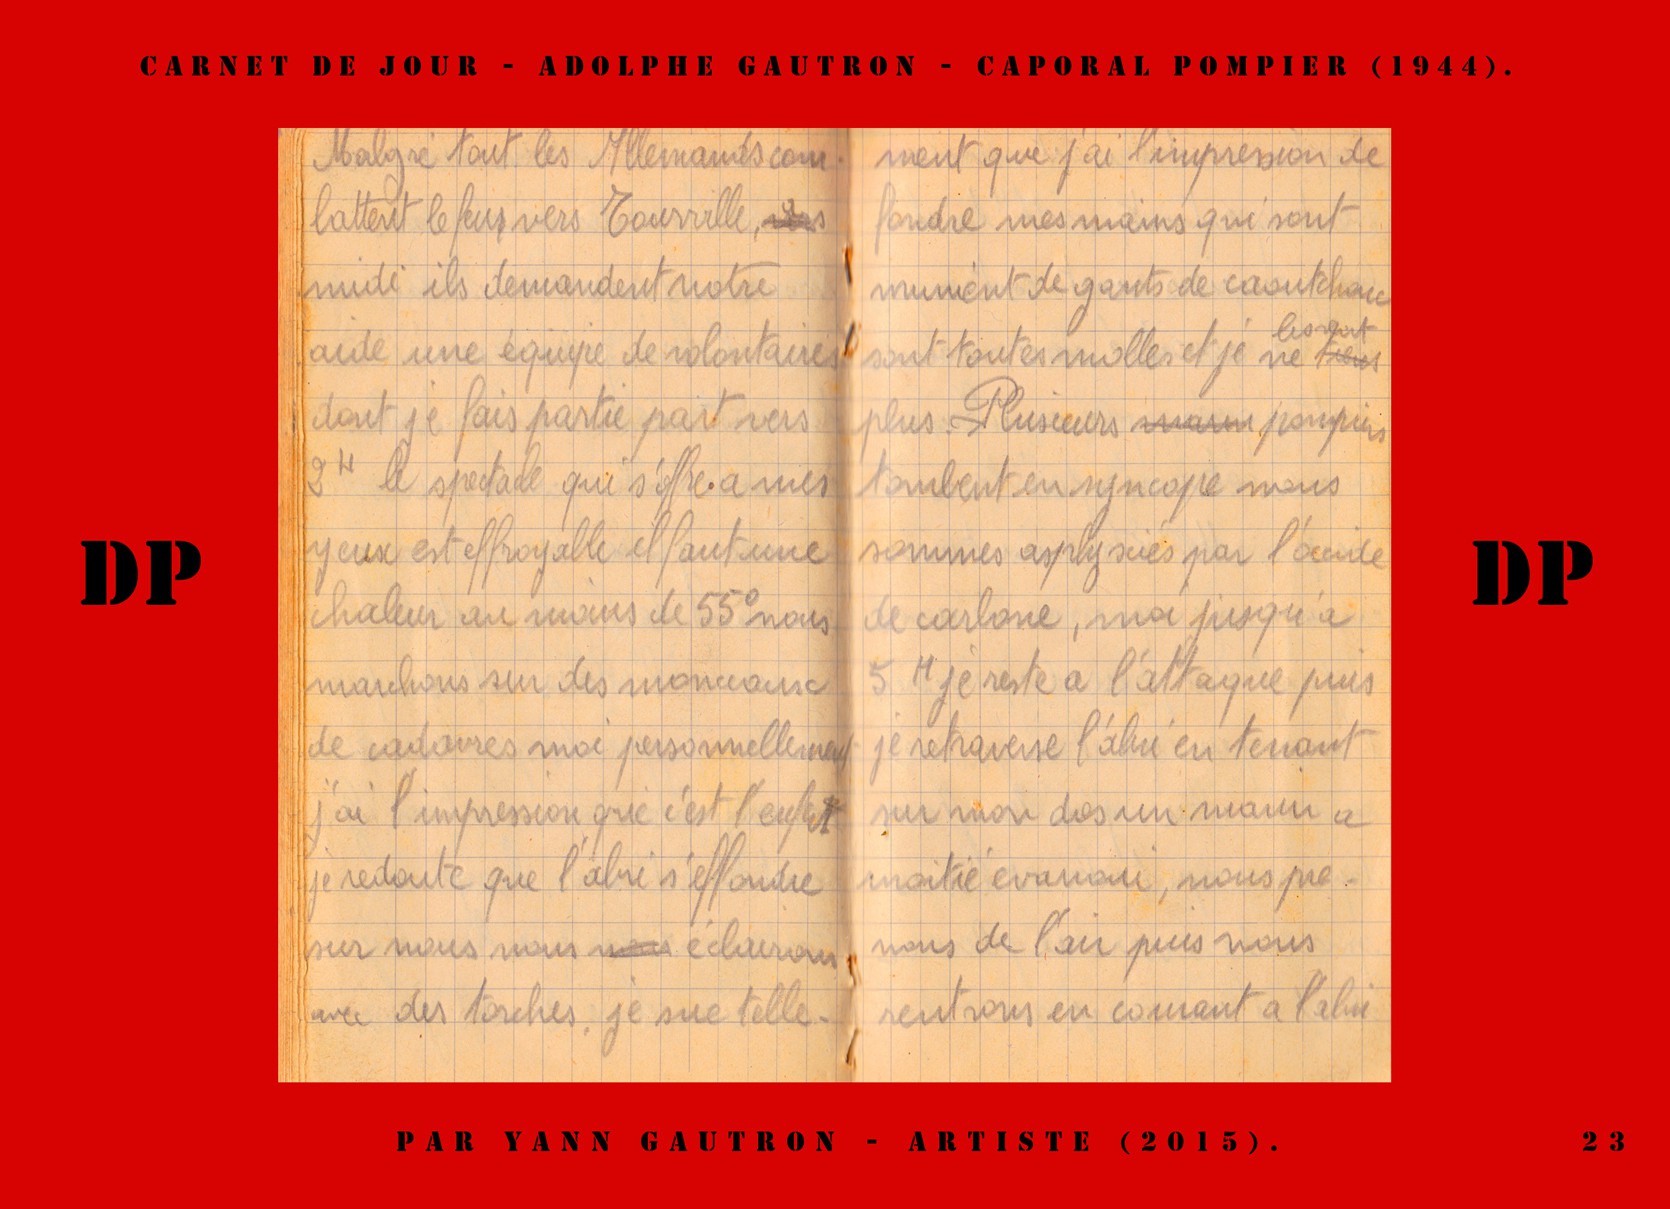 CARNET DE JOUR - ADOLPHE GAUTRON - CAPORAL POMPIER (1944).
Malgré tout les Allemands com-
battent le feu vers Tourville,
midi ils demandent notre
aide une équipe de volontaires
dont je fais partie part vers
2H le spectacle qui s'offre a mes
yeux est effroyable il faut une
chaleur au moins de 55° nous
marchons sur des monceaux
de cadavres moi personnellement
j'ai l'impression que c'est l'enfer
je redoute que l'abri s'effondre
sur nous nous éclairons
avec des torches, je sue telle-
ment que j'ai l'impression de
fondre mes mains qui sont
muniént de gants de caoutchouc
sont toutes molles et je ne les sent
plus. Plusieurs pompiers
tombent en syncope nous
sommes asphyxiés par l'oxide
de carbone, moi jusqu'a
5H je reste a l'attaque puis
je retraverse l'abri en tenant
sur mon dos un marin a
moitié évanoui, nous pre-
nons de l'air puis nous
rentrons en courant a l'abri
DP
DP
PAR YANN GAUTRON - ARTISTE (2015).
23